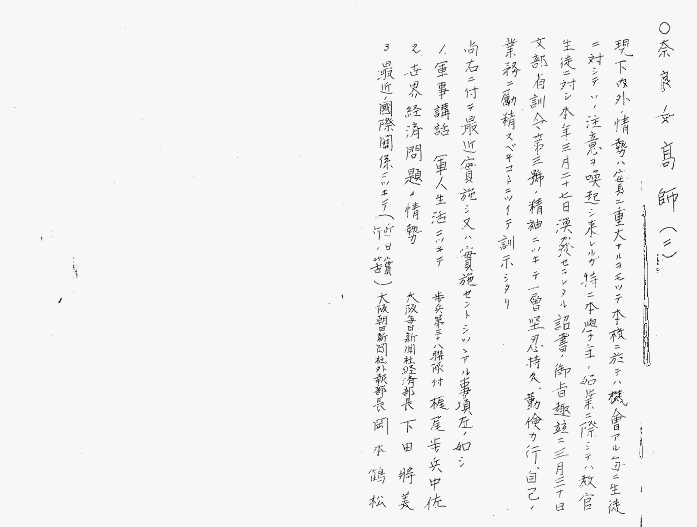 ○奈良女高師(二)
現下内外ノ情勢ハ實ニ重大ナルヲモツテ本校ニ於テハ機會アル毎ニ生徒
ニ対シテソノ注意ヲ喚起シ来レルガ特ニ本學年ノ始業ニ際シテハ教官
生徒ニ対シ本年三月二十七日渙発セラレタル詔書ノ御旨趣並ニ三月三十日
文部省訓令第三號ノ精神ニツキテ一層堅忍持久、勤倹力行、自己ノ
業務ニ勵精スベキコトニツイテ訓示シタリ
尚右ニ付テ最近實施シ又ハ實施セントシツヽアル事項左ノ如シ
1.軍事講話 (軍人生活ニツキテ 歩兵第三十八聯隊付 梶尾歩兵中佐
2.世界経済問題ノ情勢 大阪毎日新聞社経済部長 下田將美
3 最近ノ國際関係ニツキテ(近日實行ノ筈) 大阪朝日新聞社外報部長 岡本鶴松